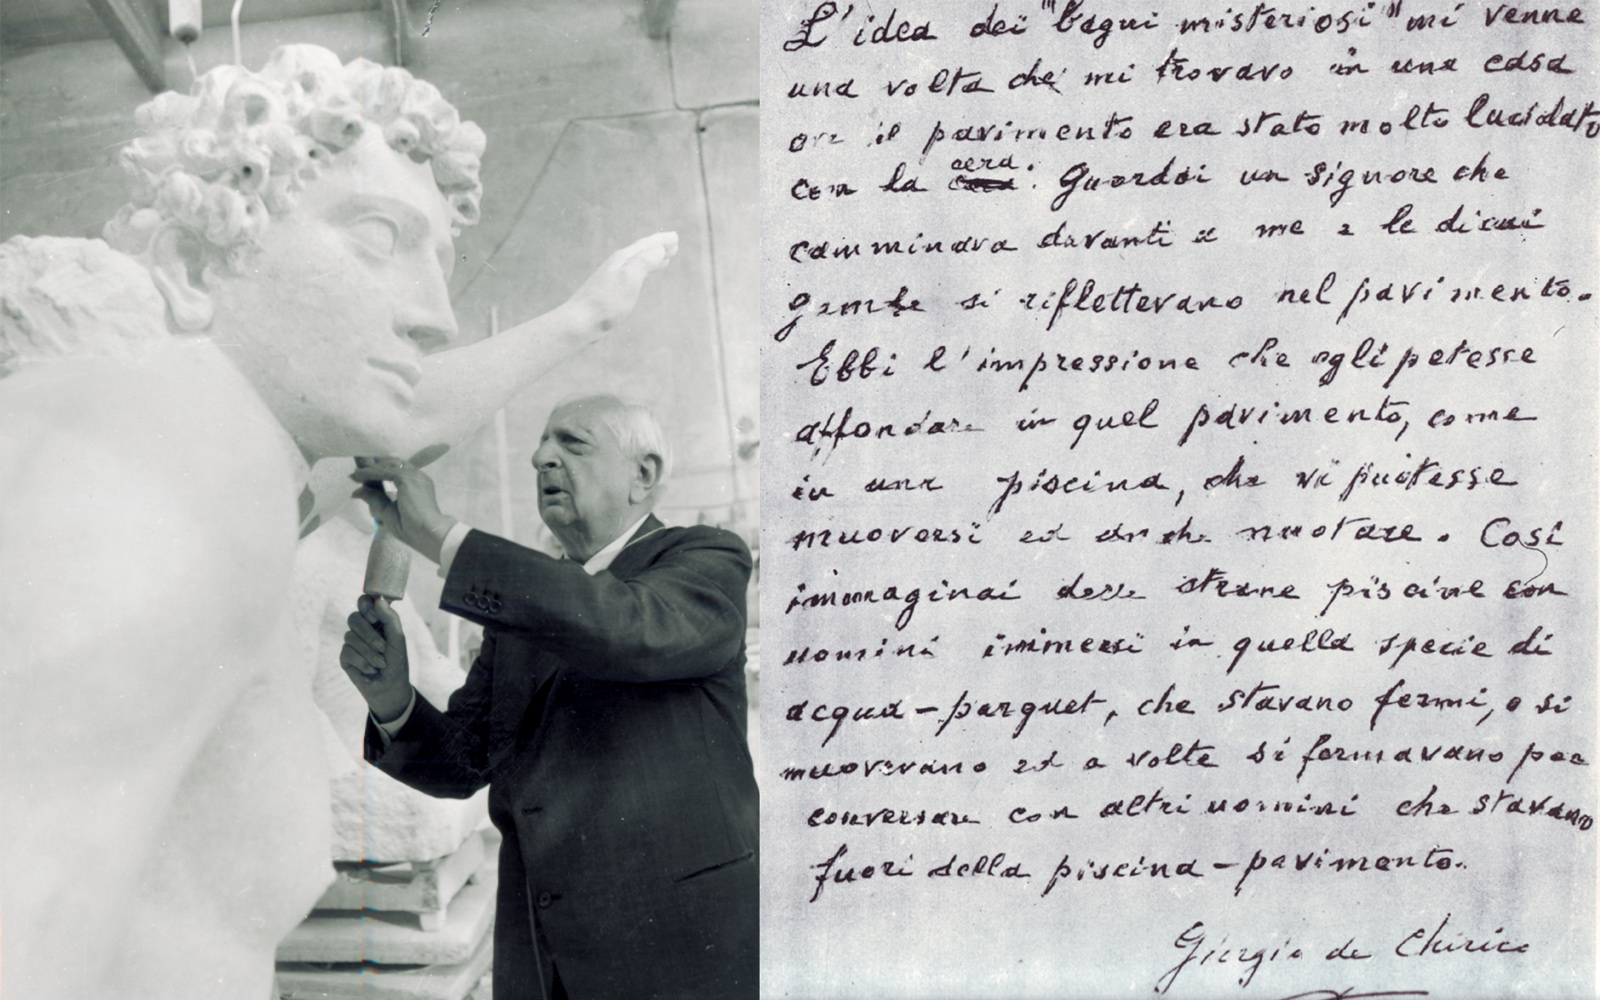 L'idea dei "bagni misteriosi" mi venne
una volta che mi trovavo in una casa
ove il pavimento era stato molto lucidato
con la cera. Guardai un signore che
camminava davanti a me e le di cui
gambe si riflettevano nel pavimento.
Ebbi l'impressione che egli potesse
affondare in quel pavimento, come
in una piscina, che vi potesse
muoversi ed anche nuotare. Così
immaginai delle strane piscine con
uomini immersi in quella specie di
acqua-parquet, che stavano fermi, e si
muovevano ed a volte si fermavano per
conversare con altri uomini che stavano
fuori della piscina-pavimento.
Giorgio de Chirico